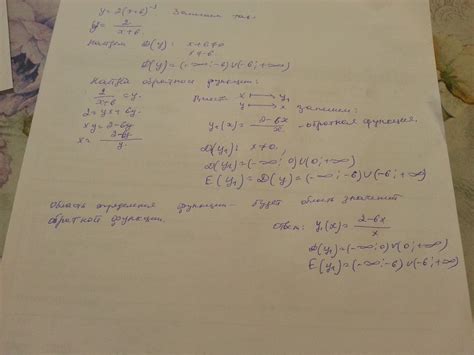 y = 2(x+6)⁻¹ Запишем так:
y = 2/(x+6)
Найдём D(y): x+6≠0
x≠-6
D(y) = (-∞; -6) ∪ (-6; +∞)
Найдём обратную функцию:
2/(x+6) = y
2 = yx + 6y
xy = 2-6y
x = (2-6y)/y
x ⟷ y
y ⟷ x запишем:
y₁(x) = (2-6x)/x - обратная функция.
D(y₁): x≠0,
D(y₁) = (-∞; 0) ∪ (0; +∞)
E(y₁) = D(y) = (-∞; -6) ∪ (-6; +∞)
Область определения функции - будет область значений
обратной функции.
Ответ: y₁(x) = (2-6x)/x
D(y₁) = (-∞; 0) ∪ (0; +∞)
E(y₁) = (-∞; -6) ∪ (-6; +∞)